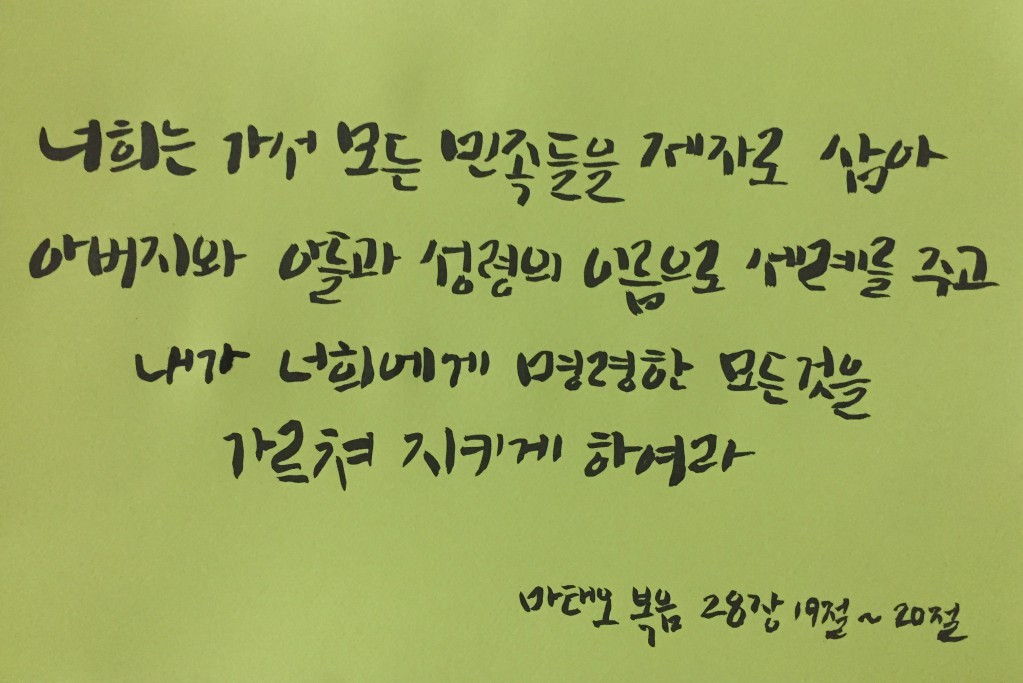 너희는 가서 모든 민족들을 제자로 삼아
아버지와 아들과 성령의 이름으로 세례를 주고
내가 너희에게 명령한 모든것을
가르쳐 지키게 하여라
마태오 복음 28장 19절~20절